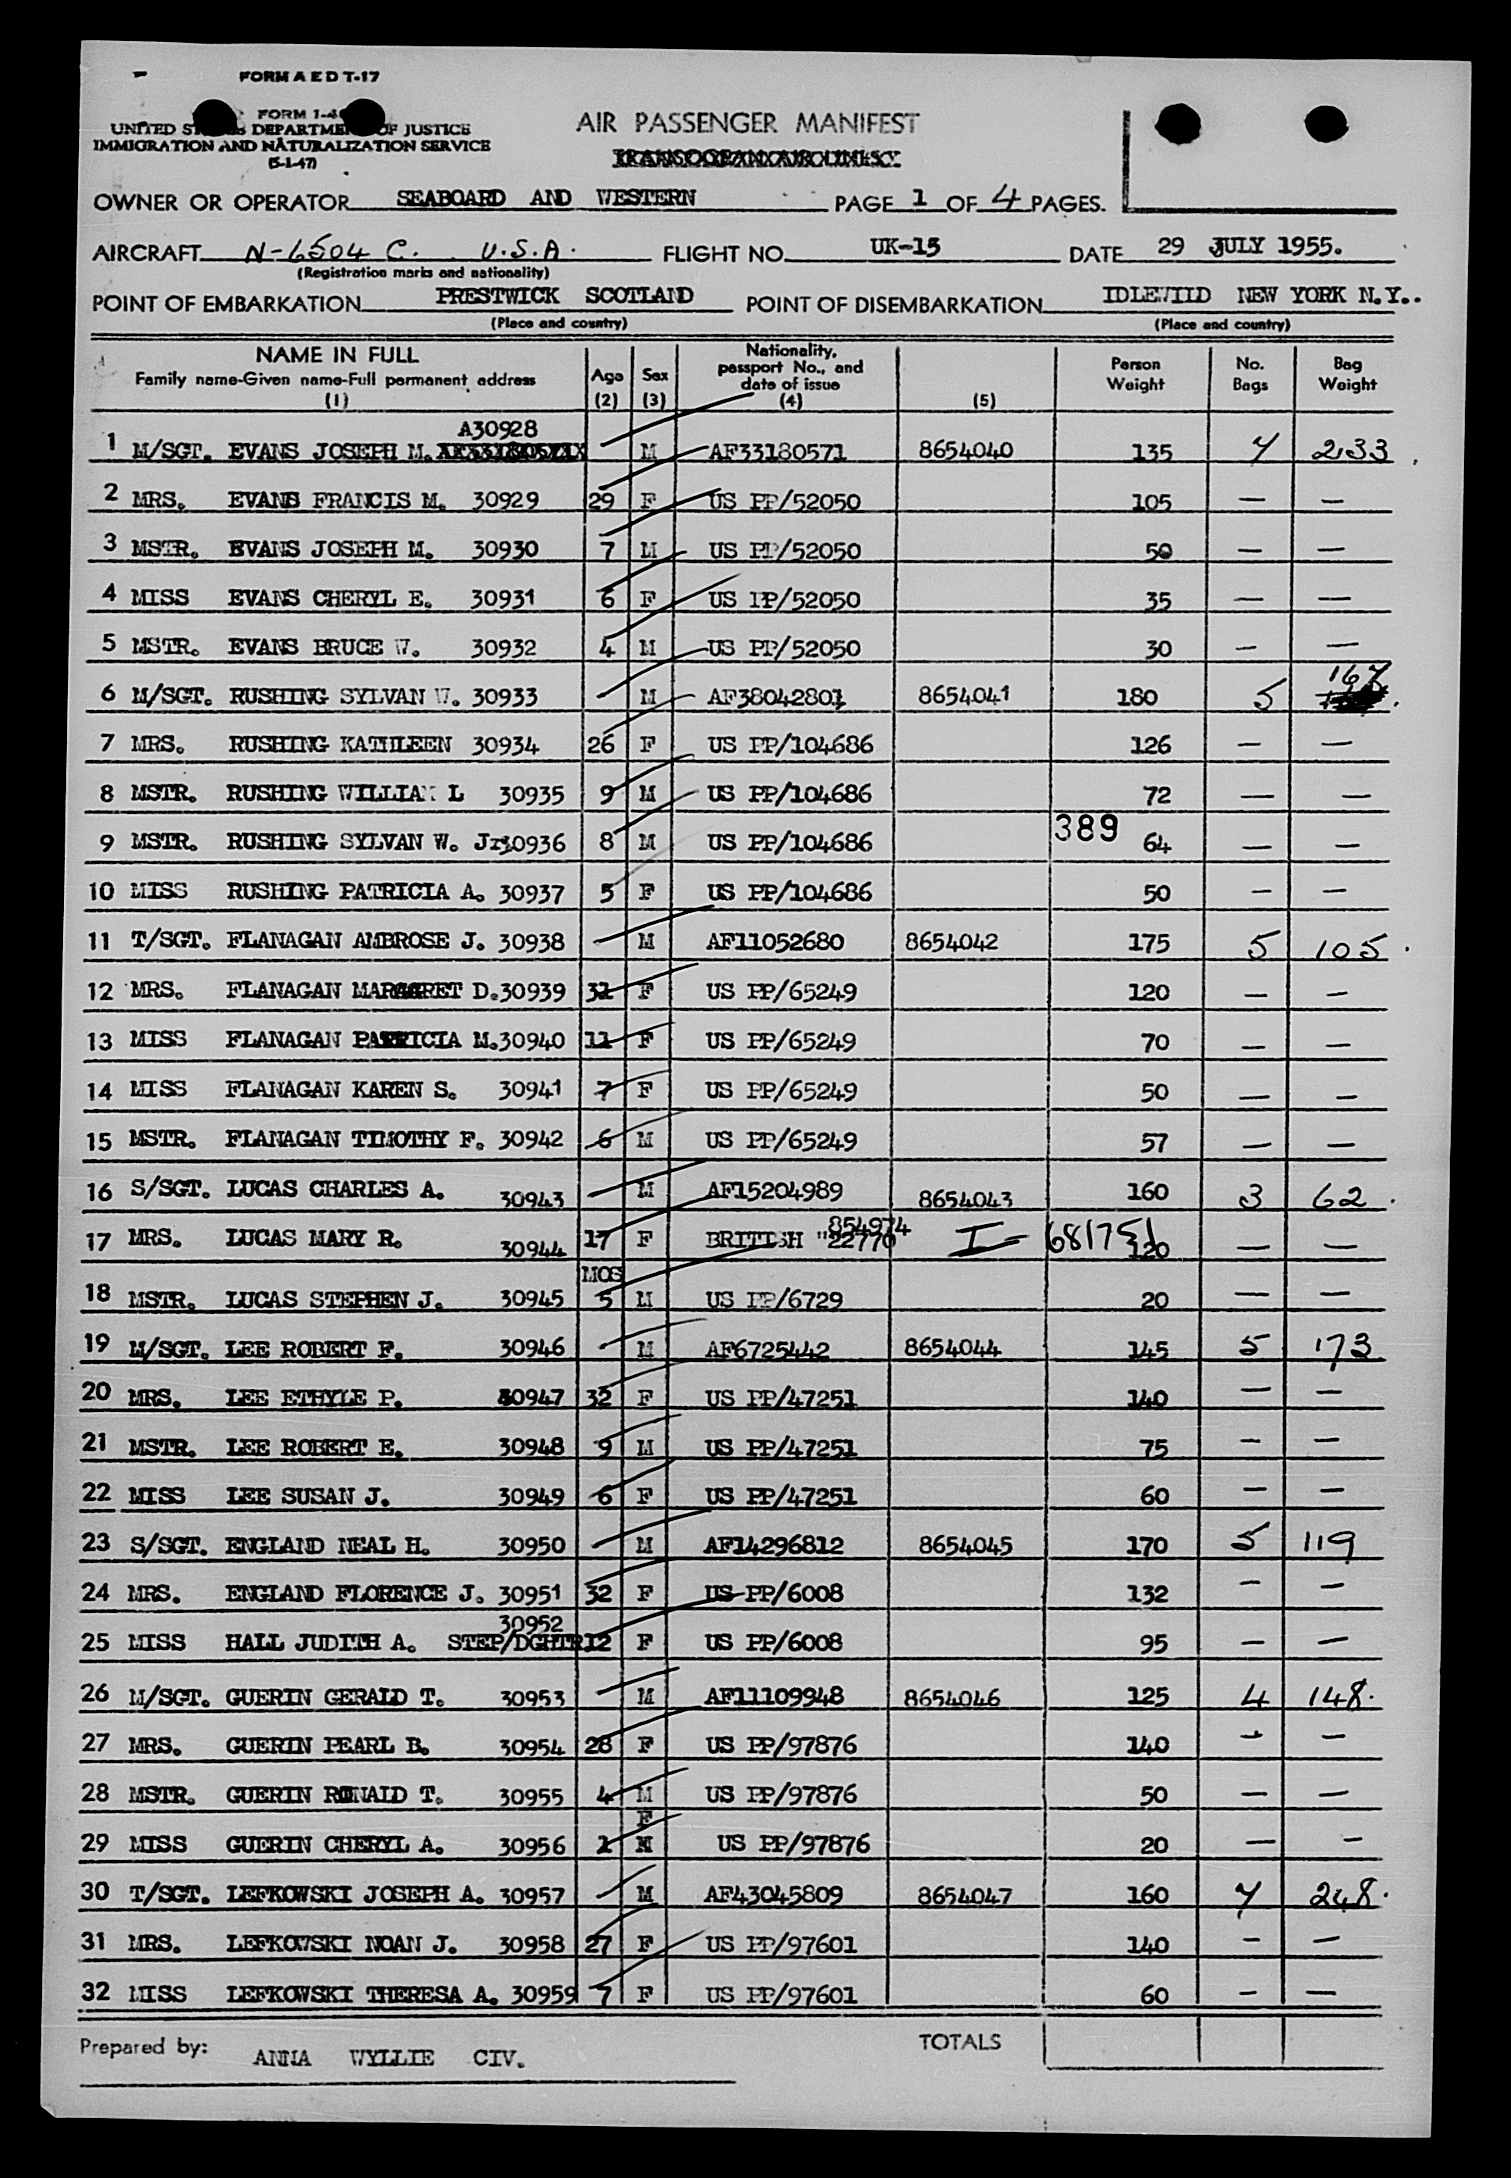 FORM A E D T-17
FORM 1-4
UNITED ST S DEPARTMEN OF JUSTICE
IMMIGRATION AND NATURALIZATION SERVICE
(5-1-47)
AIR PASSENGER MANIFEST
OWNER OR OPERATOR SEABOARD AND WESTERN PAGE 1 OF 4 PAGES.
AIRCRAFT N-6504 C. U.S.A. FLIGHT NO. UK-15 DATE 29 JULY 1955.
(Registration marks and nationality)
POINT OF EMBARKATION PRESTWICK SCOTLAND POINT OF DISEMBARKATION IDLEWILD NEW YORK N.Y..
(Place and country) (Place and country)
NAME IN FULL Nationality, passport No., and date of issue Person Weight No. Bags Bag Weight
Family name-Given name-Full permanent address Age Sex
(1) (2) (3) (4) (5)
A30928
1 M/SGT. EVANS JOSEPH M. M AF33180571 8654040 135 7 233
2 MRS. EVANS FRANCIS M. 30929 29 F US PP/52050 105 — —
3 MSTR. EVANS JOSEPH M. 30930 7 M US PP/52050 50 — —
4 MISS EVANS CHERYL E. 30931 6 F US PP/52050 35 — —
5 MSTR. EVANS BRUCE W. 30932 4 M US PP/52050 30 — —
6 M/SGT. RUSHING SYLVAN W. 30933 M AF38042801 8654041 180 5 167
7 MRS. RUSHING KATHLEEN 30934 26 F US PP/104686 126 — —
8 MSTR. RUSHING WILLIAM L 30935 9 M US PP/104686 72 — —
389
9 MSTR. RUSHING SYLVAN W. Jr. 30936 8 M US PP/104686 64 — —
10 MISS RUSHING PATRICIA A. 30937 5 F US PP/104686 50 — —
11 T/SGT. FLANAGAN AMBROSE J. 30938 M AF11052680 8654042 175 5 105
12 MRS. FLANAGAN MARGARET D. 30939 32 F US PP/65249 120 — —
13 MISS FLANAGAN PATRICIA M. 30940 11 F US PP/65249 70 — —
14 MISS FLANAGAN KAREN S. 30941 7 F US PP/65249 50 — —
15 MSTR. FLANAGAN TIMOTHY F. 30942 6 M US PP/65249 57 — —
16 S/SGT. LUCAS CHARLES A. 30943 M AF15204989 8654043 160 3 62
854974
17 MRS. LUCAS MARY R. 30944 17 F BRITISH "22770 I- 681751 120 — —
MOS
18 MSTR. LUCAS STEPHEN J. 30945 5 M US PP/6729 20 — —
19 M/SGT. LEE ROBERT F. 30946 M AF6725442 8654044 145 5 173
20 MRS. LEE ETHYLE P. 30947 32 F US PP/47251 140 — —
21 MSTR. LEE ROBERT E. 30948 9 M US PP/47251 75 — —
22 MISS LEE SUSAN J. 30949 6 F US PP/47251 60 — —
23 S/SGT. ENGLAND NEAL H. 30950 M AF14296812 8654045 170 5 119
24 MRS. ENGLAND FLORENCE J. 30951 32 F US PP/6008 132 — —
30952
25 MISS HALL JUDITH A. STEP/DGHTR 12 F US PP/6008 95 — —
26 M/SGT. GUERIN GERALD T. 30953 M AF11109948 8654046 125 4 148.
27 MRS. GUERIN PEARL B. 30954 28 F US PP/97876 140 — —
28 MSTR. GUERIN RONALD T. 30955 4 M US PP/97876 50 — —
F
29 MISS GUERIN CHERYL A. 30956 M US PP/97876 20 — —
30 T/SGT. LEFKOWSKI JOSEPH A. 30957 M AF43045809 8654047 160 7 248.
31 MRS. LEFKOWSKI NOAN J. 30958 27 F US PP/97601 140 — —
32 MISS LEFKOWSKI THERESA A. 30959 7 F US PP/97601 60 — —
Prepared by: ANNA WYLLIE CIV. TOTALS